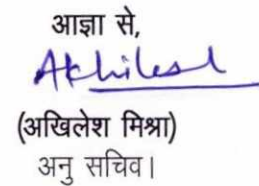 आज्ञा से,
Akhilesh
(अखिलेश मिश्रा)
अनु सचिव।